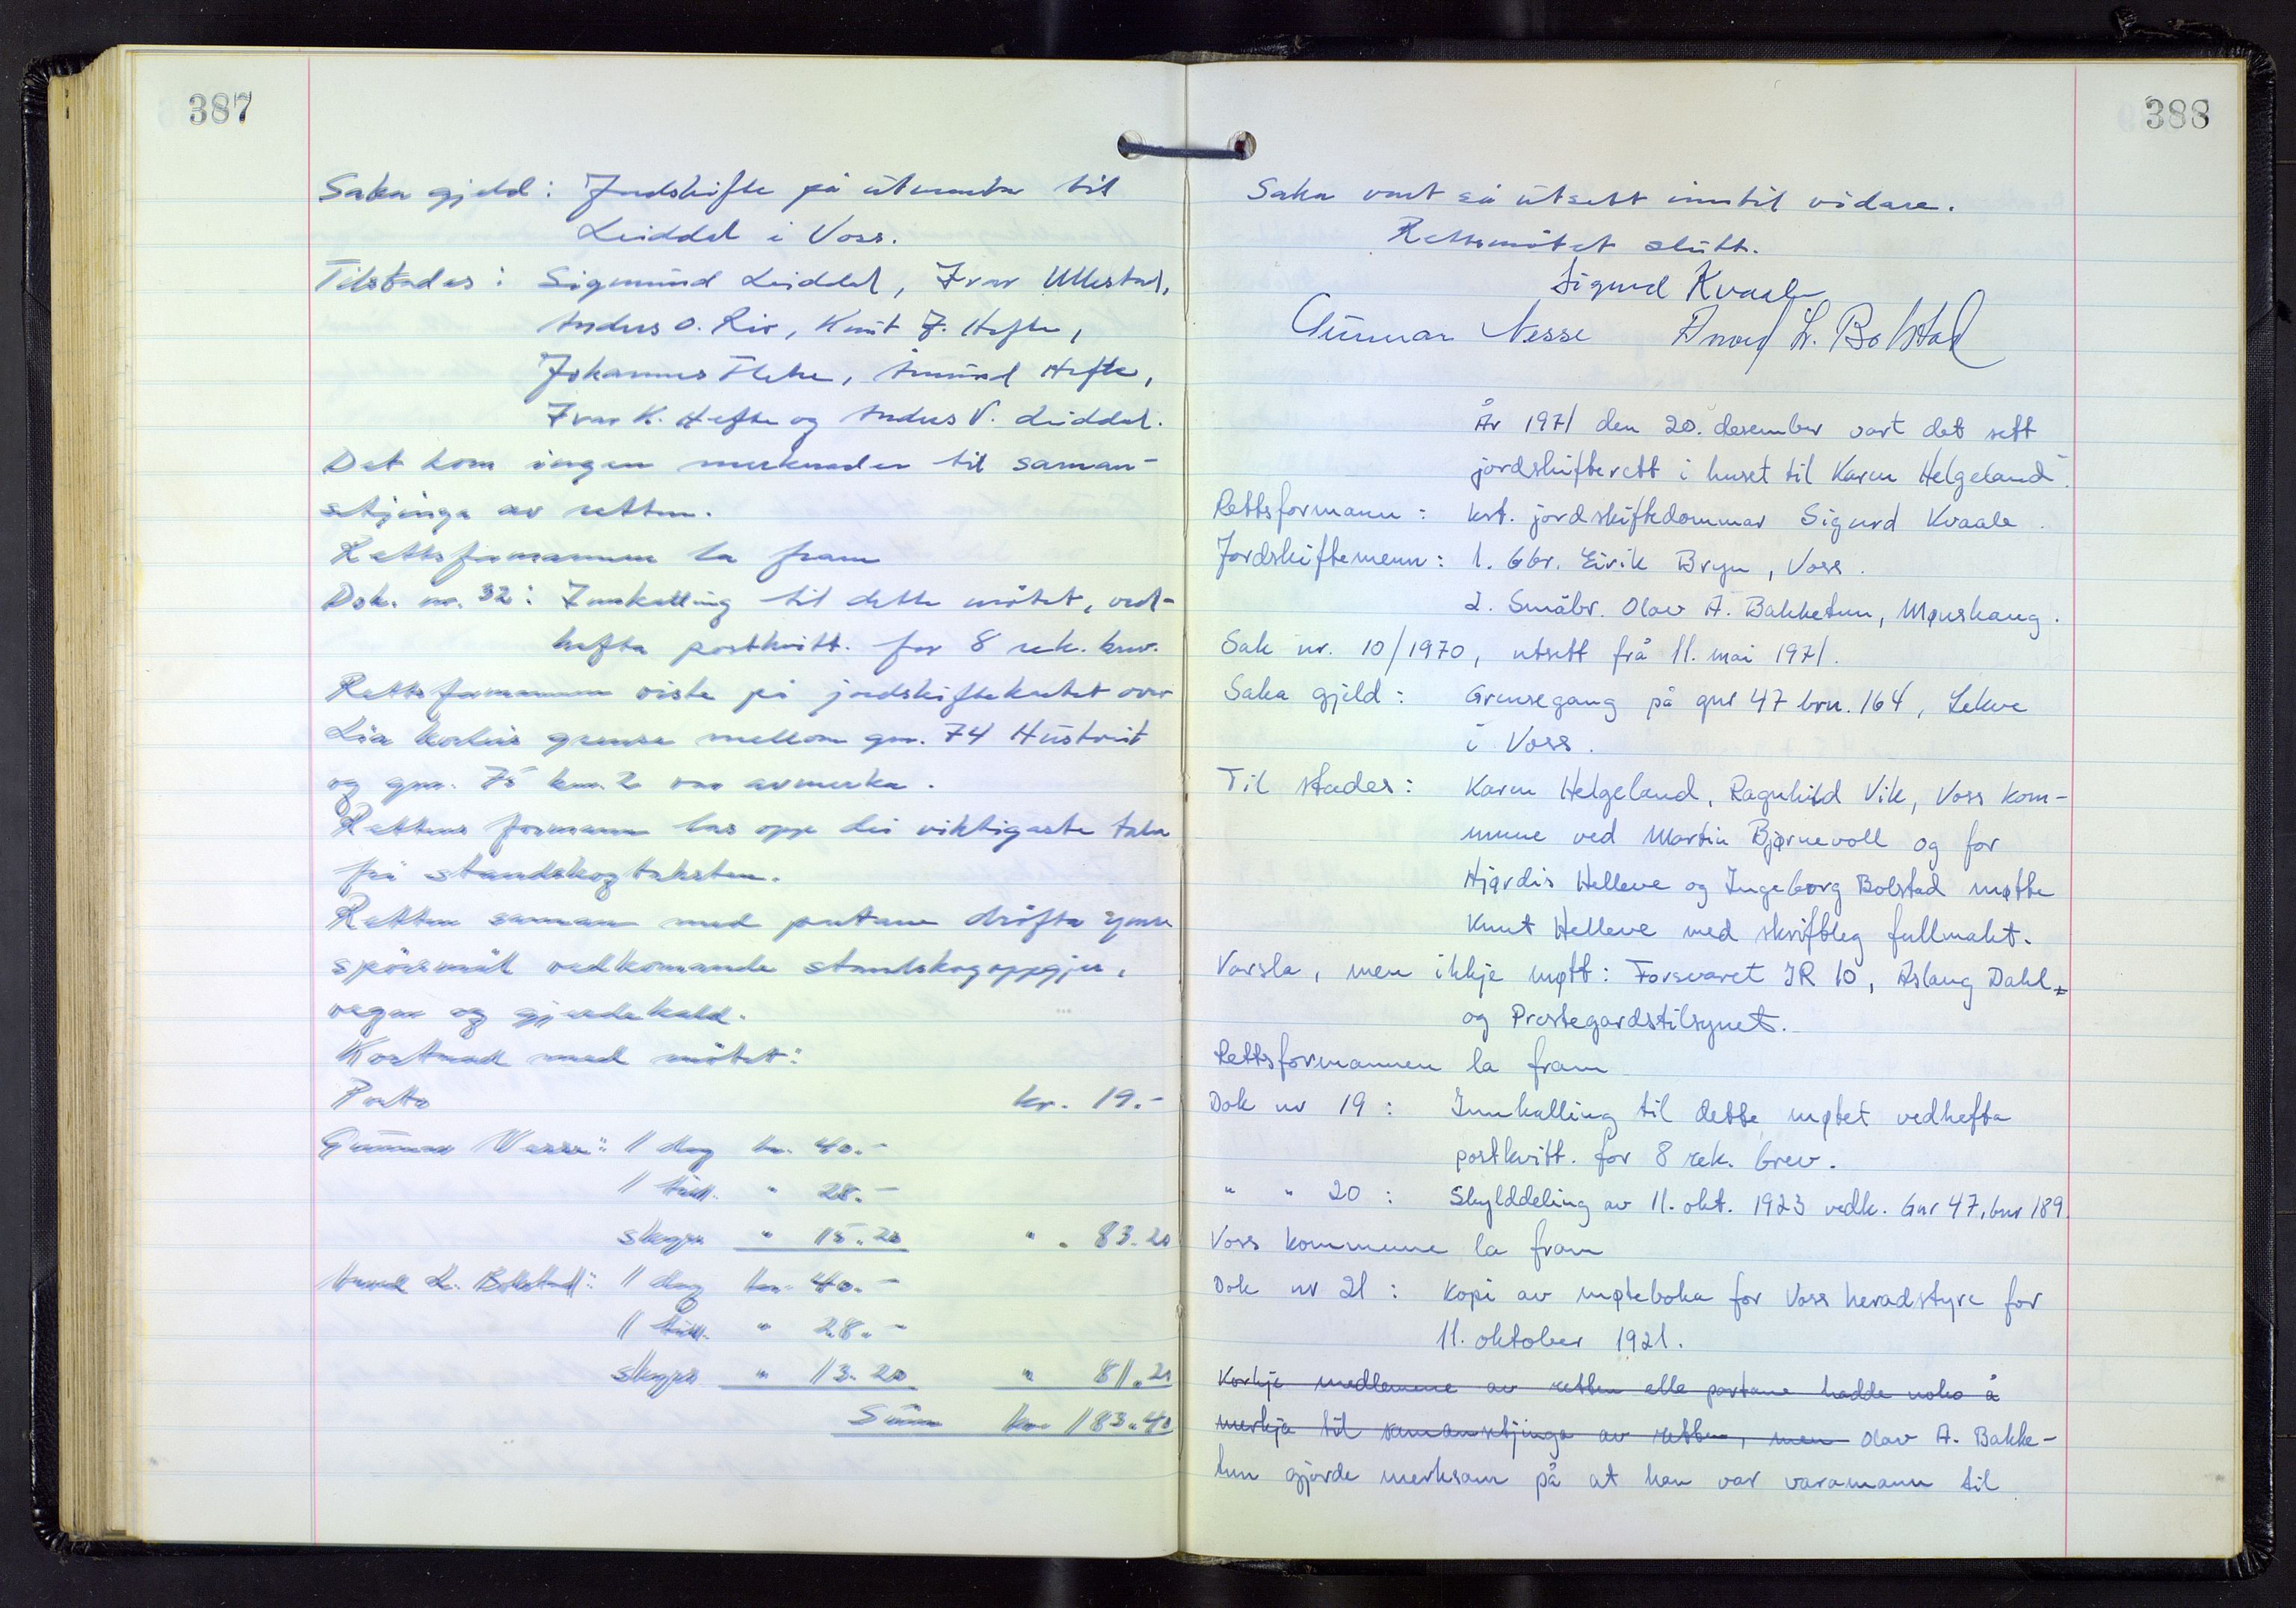 387
Saka gjeld: Jordskifte på utmarka til
Leiddal i Voss.
Tilstades: Sigmund Leiddal, Ivar Ullestad,
Anders O. Liv, Knut J. Hefte,
Johannes Fletre, Åmund Hefte,
Ivar K. Hefte og Anders V. Leiddal.
Det kom ingen merknader til saman-
setjinga av retten.
Rettsformannen la fram
Dok. nr. 32: Innkalling til dette møtet, ved-
hefta postkvitt. for 8 rek. brev.
Rettsformannen viste på jordskiftekartet over
Lia korleis grensa mellom gnr. 74 Hustveit
og gnr. 75 bnr. 2 var avmerka.
Rettens formann las opp dei viktigaste tala
frå standskogtaksten.
Retten saman med partane drøfta ymse
spørsmål vedkomande standskogoppgjer,
vegar og gjerdehald.
Kostnad med møtet:
Porto kr. 19.-
Gunnar Nesse: 1 dag kr. 40.-
1 till. " 28.-
skyss " 15.20 " 83.20
Arnord L. Bolstad: 1 dag kr. 40.-
1 till. " 28.-
skyss " 13.20 " 81.20
Sum kr. 183.40
388
Saka vart så utsett inntil vidare.
Rettsmøtet slutt.
Sigurd Kvaale
Gunnar Nesse L. Bolstad
År 1971 den 20. desember vart det sett
jordskifterett i huset til Karen Helgeland.
Rettsformann: kst. jordskiftedommar Sigurd Kvaale.
Jordskiftemenn: 1. Gbr. Eirik Bryn, Voss.
2. Småbr. Olav A. Bakketun, Mønshaug.
Sak nr. 10/1970, utsett frå 11. mai 1971.
Saka gjeld: Grensegang på gnr 47 brn. 164, Lekve
i Voss.
Til stades: Karen Helgeland, Ragnhild Vik, Voss kom-
mune ved Martin Bjørnevoll og for
Hjørdis Helleve og Ingeborg Bolstad møtte
Knut Helleve med skriftleg fullmakt.
Varsla, men ikkje møtt: Forsvaret IR 10, Aslaug Dahl
og Prestegardstilsynet.
Rettsformannen la fram
Dok nr 19: Innkalling til dette møtet vedhefta
postkvitt. for 8 rek. brev.
" " 20: Skylddeling av 11. okt. 1923 vedk. Gnr 47, bnr 189.
Voss kommune la fram
Dok nr 21: Kopi av møteboka for Voss heradstyre for
11. oktober 1921.
Korkje medlemene av retten elle partane hadde noko å
merkja til samansetjinga av retten, men Olav A. Bakke-
tun gjorde merksam på at han var varamann til